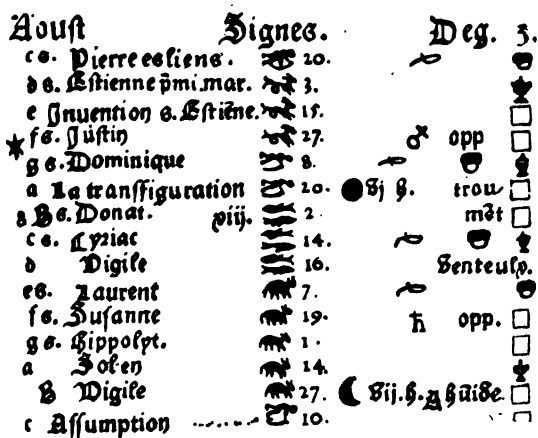 Aoust Signes. Deg. 3.
c s. Pierre es liens. 20.
d s. Estienne p̄mi. mar. 3.
e Inuention s. Estiēne. 15.
f s. Justin 27. opp
g s. Dominique 8.
a La transfiguration 20. trou
s. Donat. viij. 2
c s. Cyriac 14.
d Vigile 16.
e s. Laurent 7.
f s. Susanne 19. opp.
g s. Hippolyt. 1.
a 14.
b Vigile 27.
c Assumption 10.